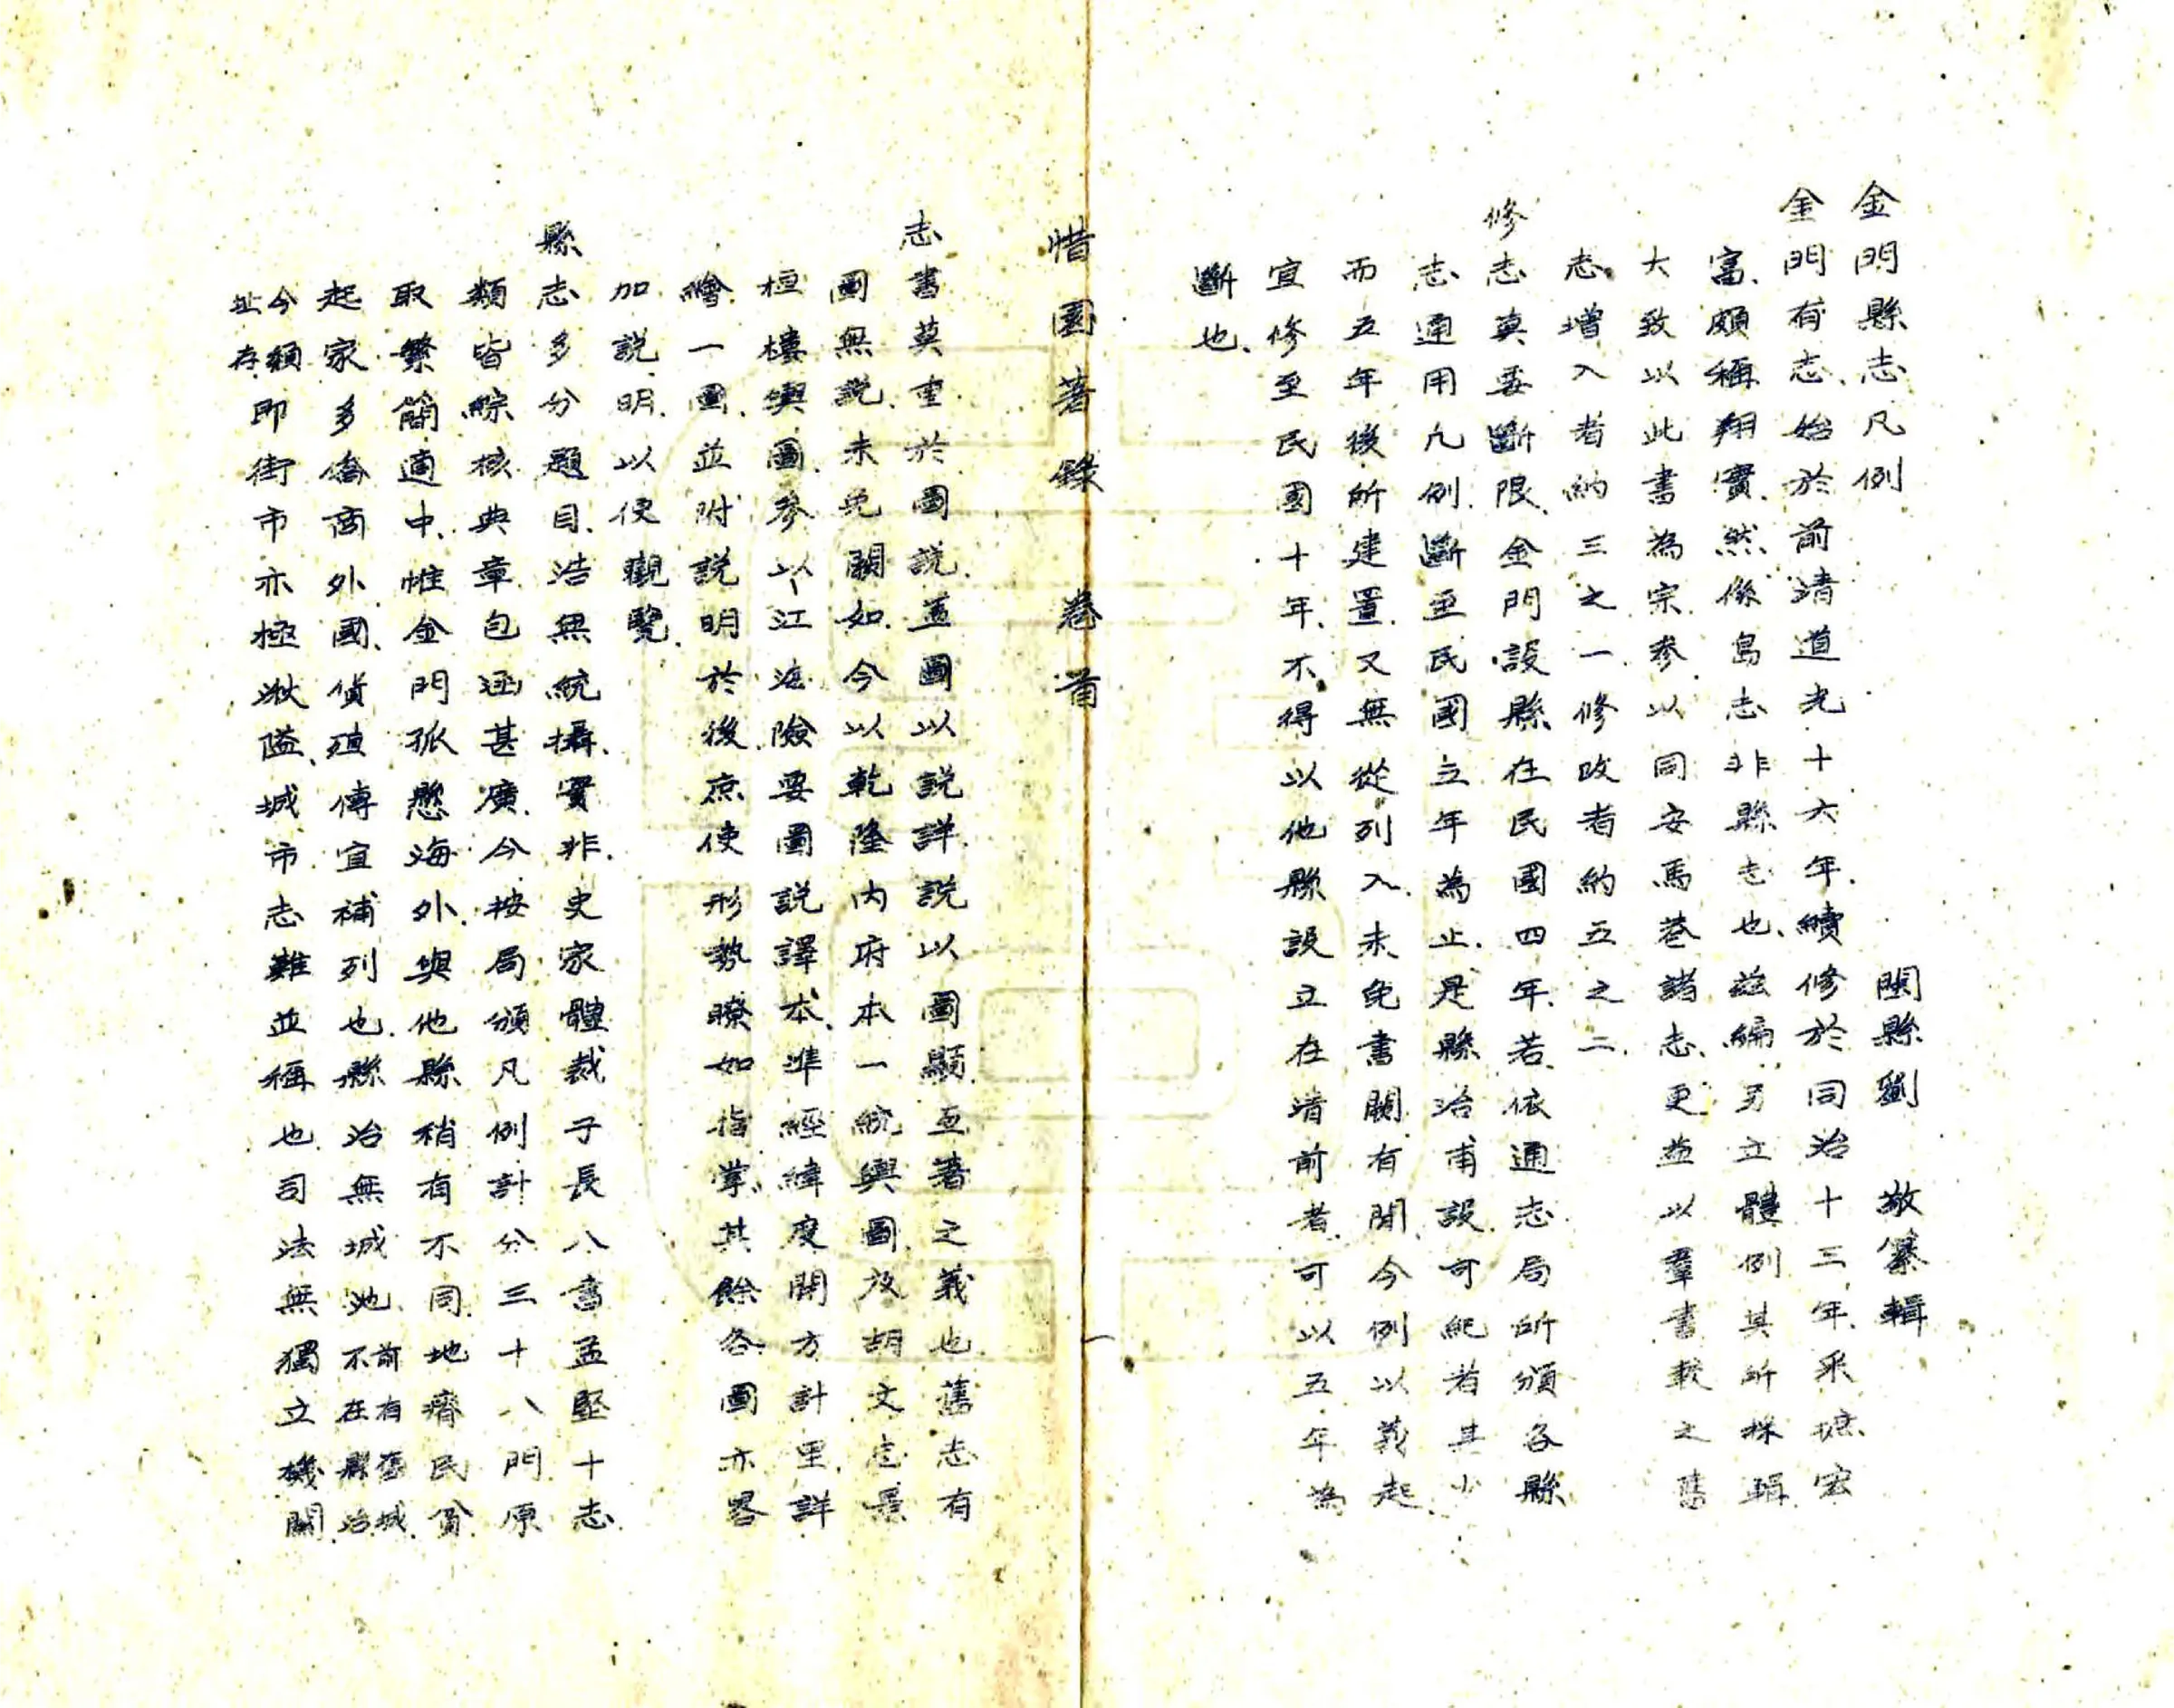 金門縣志凡例
閩縣劉　敬纂輯
金門有志、始於前清道光十六年、續修於同治十三年、采摭宏
富、頗稱翔實、然係島志非縣志也、茲編另立體例其所採輯
大致以此書為宗、參以同安馬巷諸志、更益以羣書較之舊
志、增入者約三之一、修改者約五之二、
修志莫要斷限、金門設縣在民國四年、若依通志局所頒各縣
志通用凡例、斷至民國立年為止、是縣治甫設、可紀者甚少
而五年後所建置、又無從列入、未免書闕有間、今例以義起
宜修至民國十年、不得以他縣設立在清前者、可以五年為
斷也、
惜園著錄　卷首
志書莫重於圖說、蓋圖以說詳、說以圖顯、互著之義也、舊志有
圖無說、未免闕如、今以乾隆內府本一統輿圖、及胡文忠景
桓樓輿圖、參以江海險要圖說譯本、準經緯度開方計里、詳
繪一圖、並附說明於後、庶使形勢瞭如指掌、其餘各圖亦畧
加說明、以便觀覽、
縣志多分題目、浩無統攝、實非史家體裁子長八書孟堅十志、
類皆綜核典章包涵甚廣、今按局頒凡例計分三十八門、原
取繁簡適中、惟金門孤懸海外、與他縣稍有不同、地瘠民貧、
起家多僑商外國、貨殖傳宜補列也、縣治無城池、前有舊城
不在縣治
今頹
址存、即街市亦極湫隘、城市志難並稱也、司法無獨立機關、